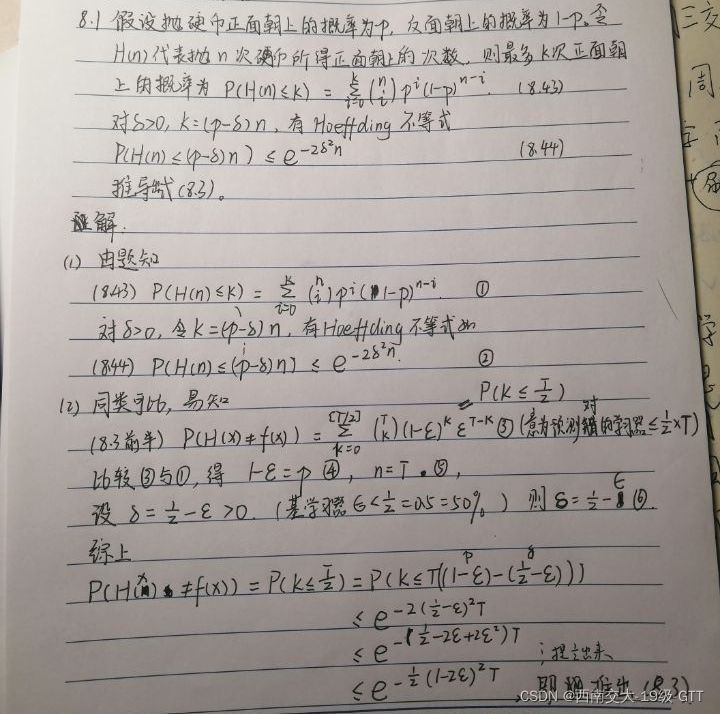 8.1 假设抛硬币正面朝上的概率为p, 反面朝上的概率为1-p。令
H(n)代表抛n次硬币所得正面朝上的次数, 则最多k次正面朝
上的概率为 P(H(n)≤k) = Σ_{i=0}^{k} (n i) p^i (1-p)^{n-i}. (8.43)
对δ>0, k=(p-δ)n, 有 Hoeffding 不等式
P(H(n)≤(p-δ)n) ≤ e^{-2δ²n} (8.44)
推导出(8.3)。
解:
(1) 由题知
(8.43) P(H(n)≤k) = Σ_{i=0}^{k} (n i) p^i (1-p)^{n-i}. ①
对δ>0, 令k=(p-δ)n, 有Hoeffding不等式如
(8.44) P(H(n)≤(p-δ)n) ≤ e^{-2δ²n}. ②
(2) 同类可比, 易知 = P(k≤T/2)
(8.3前半) P(H(x)≠f(x)) = Σ_{k=0}^{[T/2]} (T k) (1-ε)^k ε^{T-k} ③ (意为预测对的学习器≤½×T)
比较③与①, 得 1-ε=p ④, n=T ⑤,
设 δ=½-ε>0. (基学习器ε<½=0.5=50%) 则 δ=½-ε ⑥.
综上
P(H(x)≠f(x)) = P(k≤T/2) = P(k≤T((1-ε)-(½-ε)))
≤ e^{-2(½-ε)²T}
≤ e^{-(½-2ε+2ε²)T} ; 提½出来
≤ e^{-½(1-2ε)²T} (8.3)
CSDN @西南交大-19级-GTT